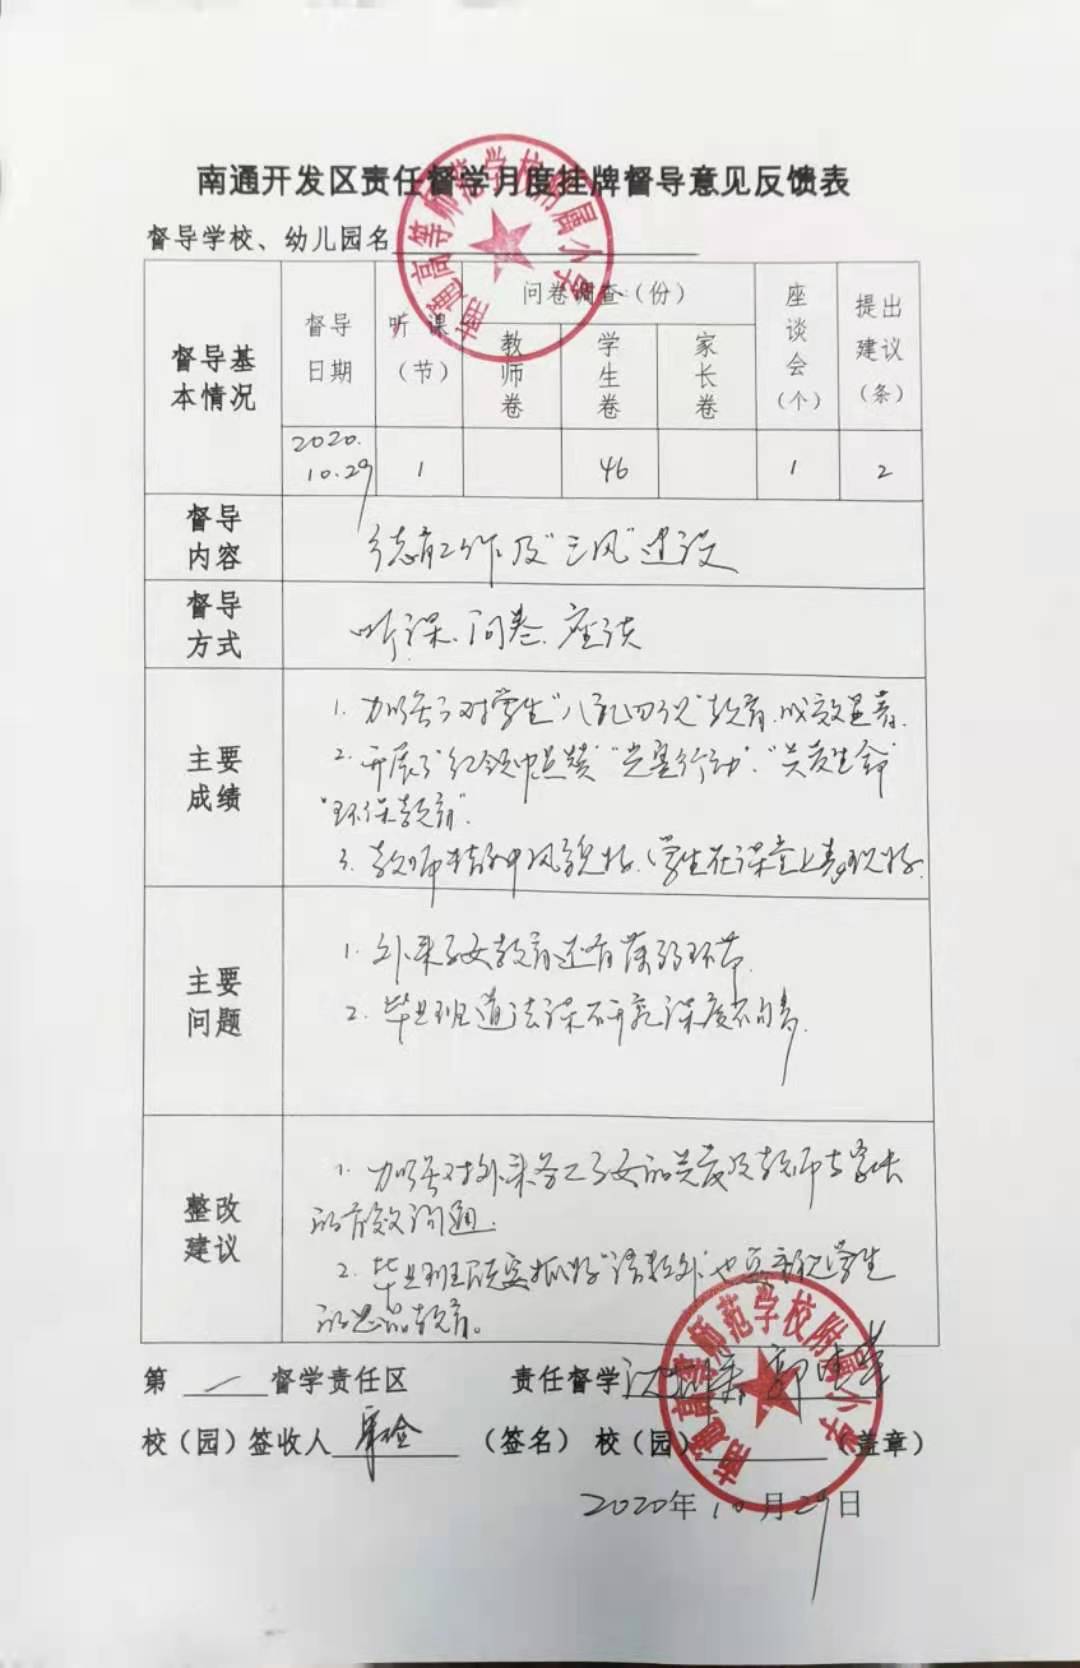 南通开发区责任督学月度挂牌督导意见反馈表
南通高等师范学校附属小学
督导学校、幼儿园名
督导基本情况
督导日期
听课（节）
问卷调查（份）
教师卷
学生卷
家长卷
座谈会（个）
提出建议（条）
2020.
10.29
1
46
1
2
督导内容
德育工作及“三风”建设
督导方式
听课、问卷、座谈
主要成绩
1. 加强了对学生“八礼四仪”教育，成效显著。
2. 开展了“红领巾 “光盘行动”、“关爱生命”
“环保教育”。
3. 教师精神风貌好，学生在课堂上表现好。
主要问题
1. 外来子女教育还有薄弱环节
2. 毕业班道法课研究深度不够
整改建议
1. 加强对外来务工子女的关爱及教师与家长
的有效沟通。
2. 毕业班既要抓好“语数外”也要重视学生
的思品教育。
第 一 督学责任区
责任督学
校（园）签收人
（签名） 校（园） （盖章）
南通高等师范学校附属小学
2020年10月29日